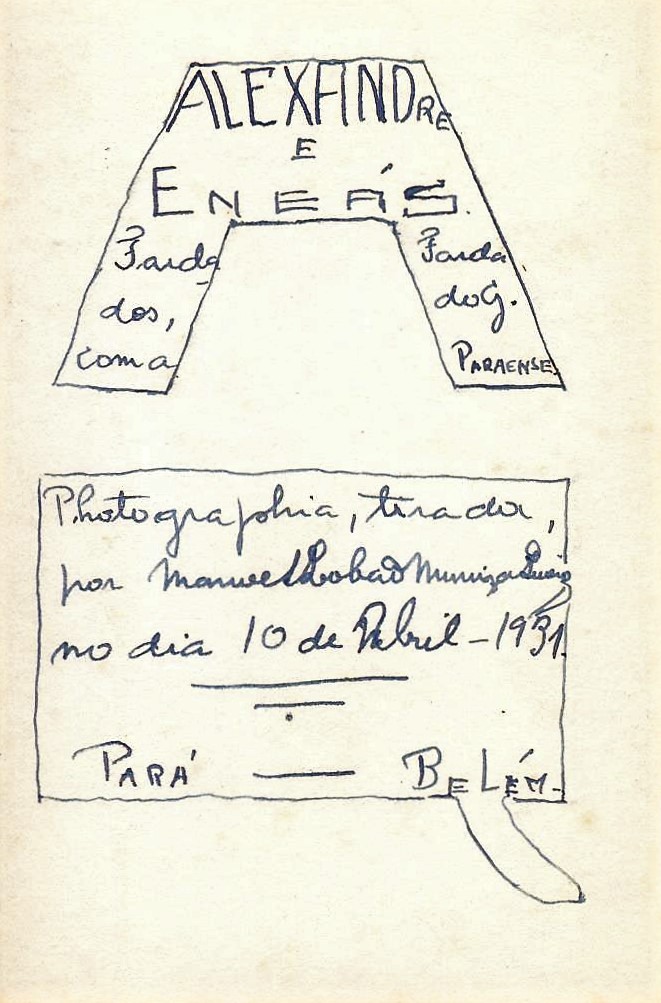 ALEXANDRE
E
ENEÁS.
Farda
dos,
com a
Farda
do G.
PARAENSE.
Photographia, tirada,
por Manoel Lobão Muniz
no dia 10 de Abril - 1931.
PARÁ — BELÉM-